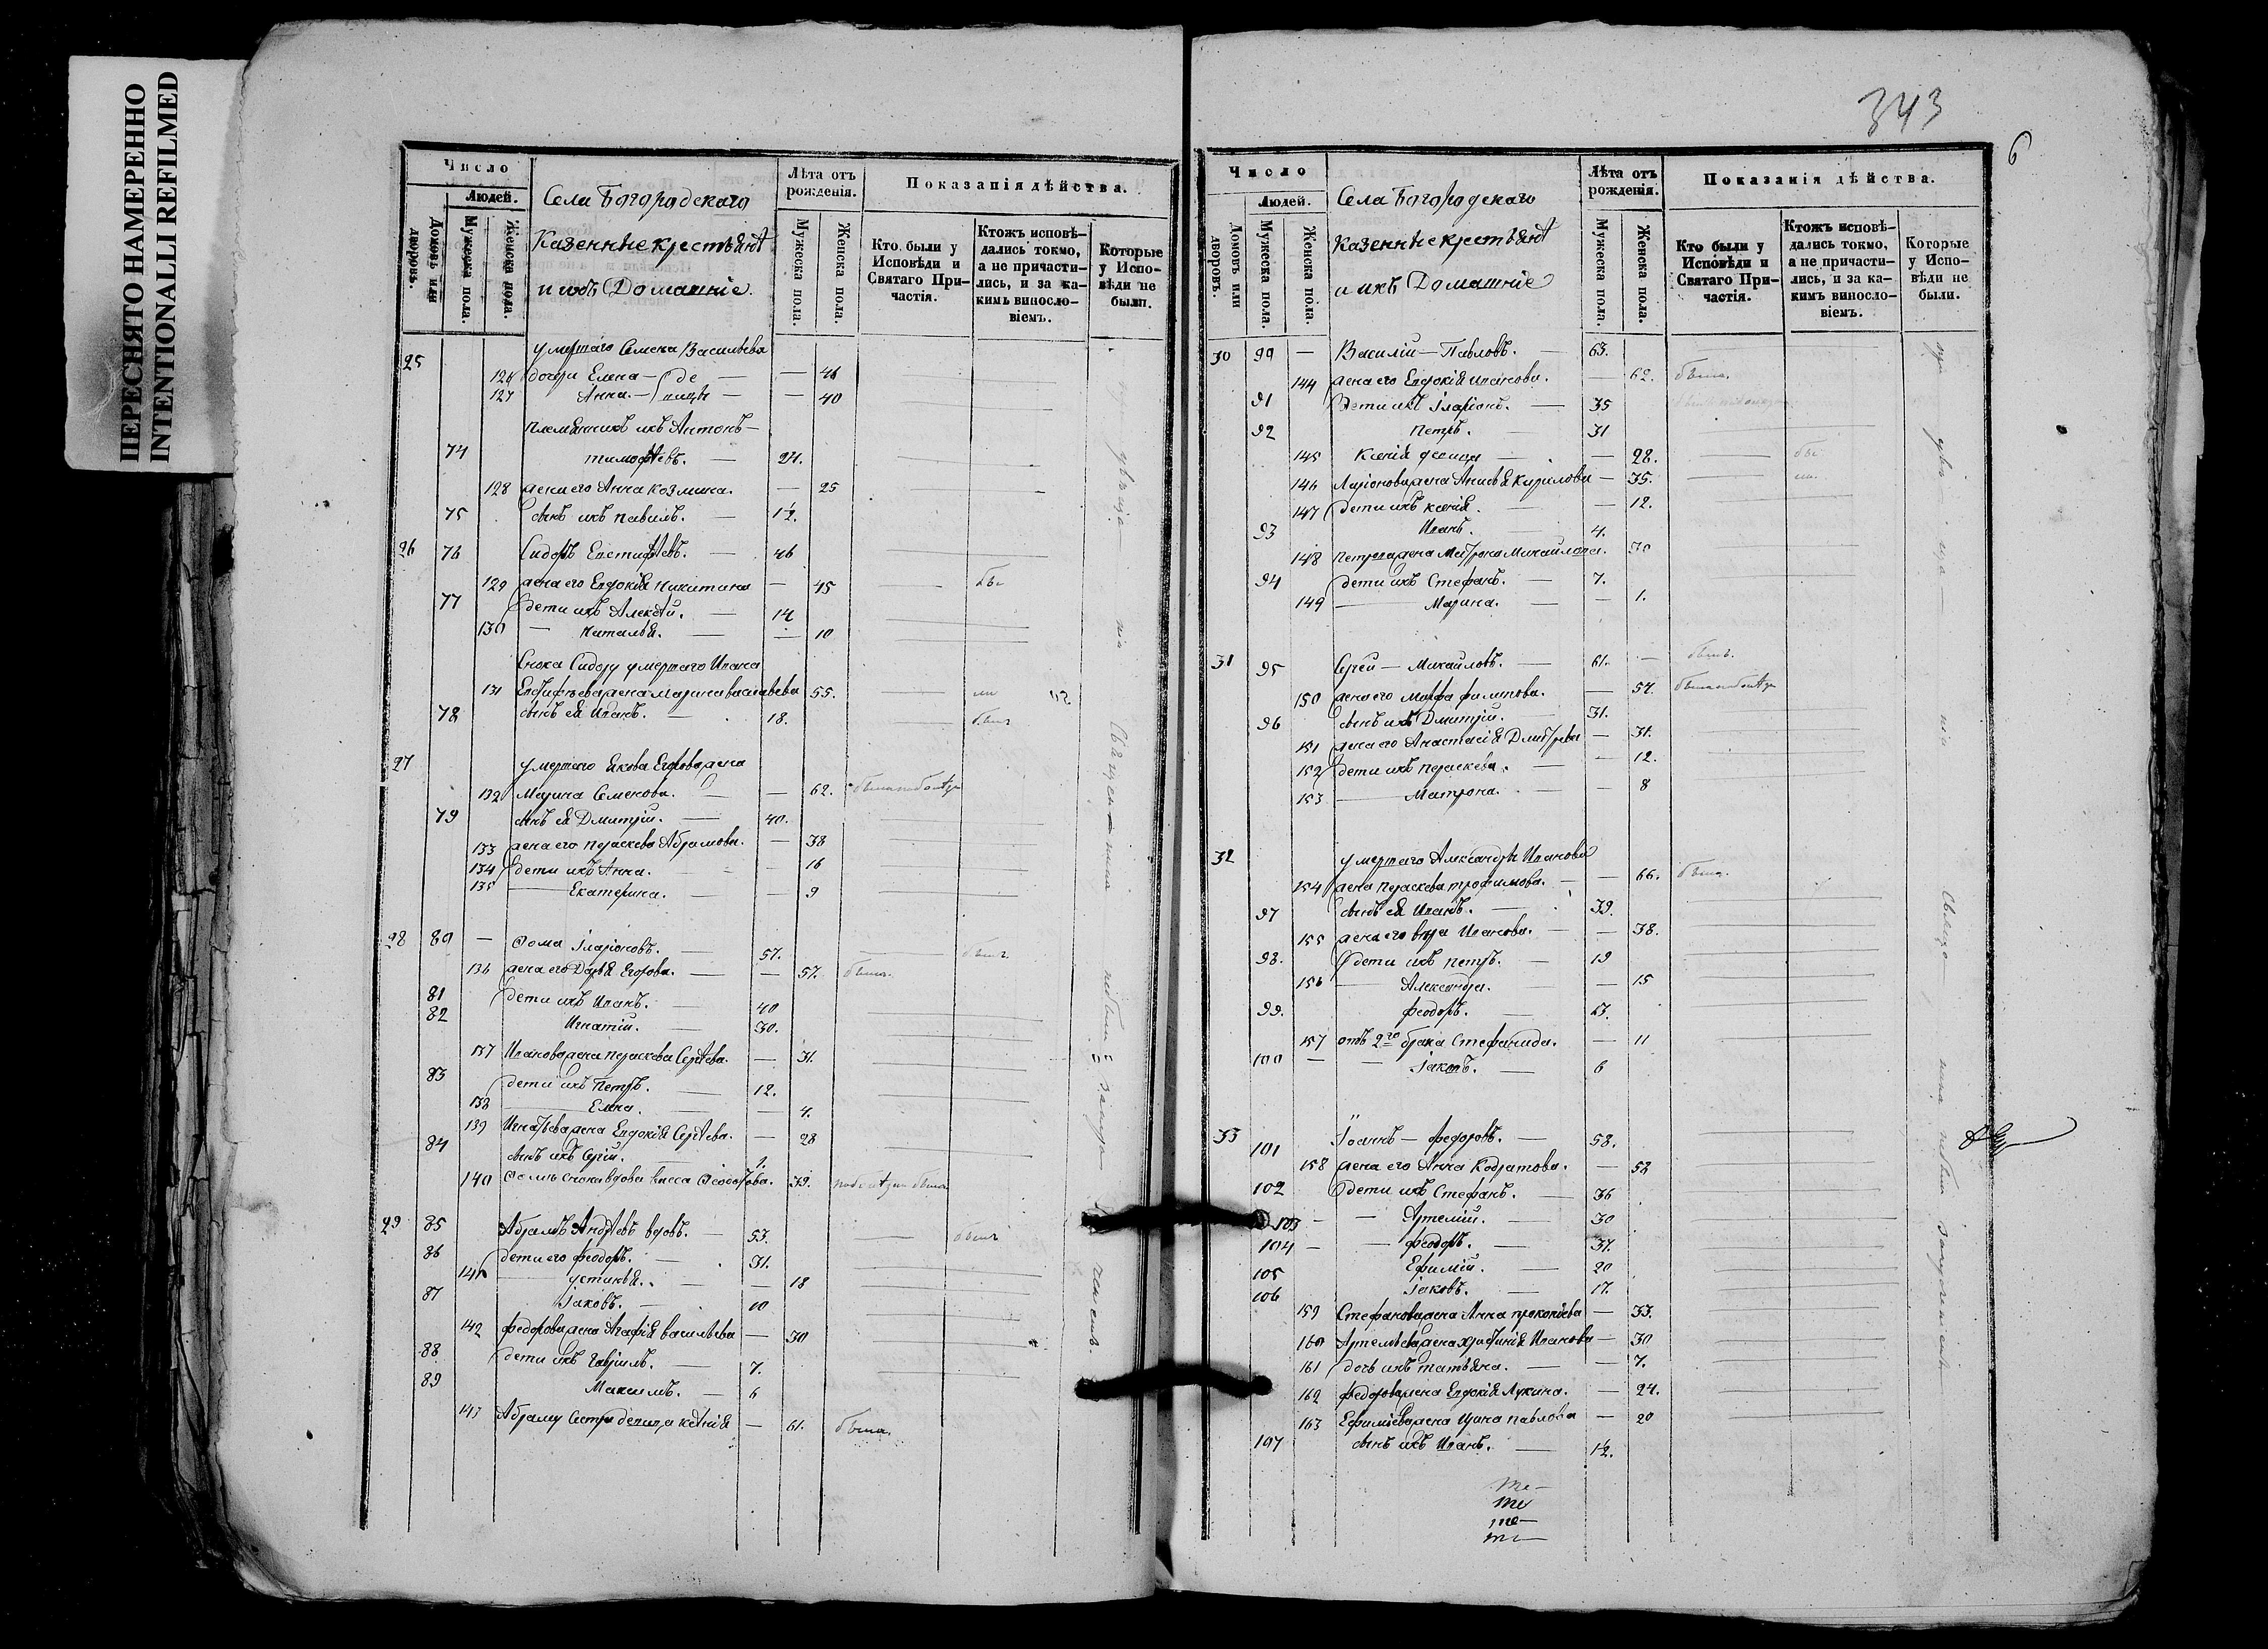 ПЕРЕСНЯТО НАМЕРЕННО
INTENTIONALLI REFILMED
Число
Людей.
Домовъ или дворовъ.
Мужеска пола.
Женска пола.
Села Богородскаго
Казенные крестьяне
и ихъ Домашніе.
Лѣта отъ рожденія.
Мужеска пола.
Женска пола.
Показанія дѣйства.
Кто были у Исповѣди и Святаго Причастія.
Ктожъ исповѣдались токмо, а не причастились, и за какимъ винословіемъ.
Которые у Исповѣди не были.
25 умершаго Семена Васильева
126 дочери Елена — де — 46
127 Анна — вицы — 40
племянникъ ихъ Антонъ
74 тимофѣевъ. — 24.
128 жена его Анна Козмина. — 25
75 сынъ ихъ павилъ. — 1½.
26 76 Сидоръ Евстифѣевъ. — 46
129 жена его Евдокія Никитина — 45
77 дети ихъ Алексѣй. — 14
130 — Наталья. — 10
Сноха Сидору умершаго Ивана
131 жена Марина васильева 55.
78 сынъ ея Иванъ. — 18.
27 умершаго Якова Егорова жена
132 Марина Семенова. — 62.
79 сынъ ея Дмитрій. — 40.
133 жена его параскева Абрамова. — 38
134 дети ихъ Анна. — 16
135 — Екатерина. — 9
28 80 — Фома Іларіоновъ. — 57.
136 жена его Дарья Егорова. — 57. была.
81 дети ихъ Иванъ. — 40
82 Игнатій. — 30.
137 Иванова жена параскева Сергѣева. — 31.
83 дети ихъ Петръ. — 12.
138 — Елена. — 4.
139 Игнатьева жена Евдокія Сергѣева. — 28
84 сынъ ихъ Сергій. — 1.
140 сноха вдова 39.
29 85 Абрамъ Андрѣевъ вдовъ. — 53.
86 дети его феодоръ. — 31.
141 — устинья. — 18
87 Іаковъ. — 10
142 федорова жена Агафія васильева — 30
88 дети ихъ Гавріилъ. — 7.
89 Максимъ. — 6
143 Абраму Сестра девица — 61. была.
343
6
Число
Людей.
Домовъ или дворовъ.
Мужеска пола.
Женска пола.
Села Богородскаго
Казенные крестьяне
и ихъ Домашніе
Лѣта отъ рожденія.
Мужеска пола.
Женска пола.
Показанія дѣйства.
Кто были у Исповѣди и Святаго Причастія.
Ктожъ исповѣдались токмо, а не причастились, и за какимъ винословіемъ.
Которые у Исповѣди не были.
30 90 — Василій — Павловъ. — 63.
144 жена его Евдокія иванова. — 62. была.
91 Дети ихъ Іларіонъ. — 35
92 петръ. — 31
145 Ксенія девица — 28.
146 Ларіонова жена Анисья Кирилова — 35.
147 дети ихъ ксенія. — 12.
93 Иванъ. — 4.
148 Петрова жена Матрона Михайлова. 30
94 дети ихъ Стефанъ. — 7.
149 — Марина. — 1.
31 95 Сергей — Михайловъ. — 61. — былъ.
150 жена его Марфа филипова. — 54.
96 сынъ ихъ Дмитрій. — 31.
151 жена его Анастасія Дмитрева — 31.
152 дети ихъ параскева. — 12.
153 — Матрона. — 8
32 умершаго Александра Иванова
154 жена параскева трофимова. — 66. была.
97 сынъ ея Иванъ. — 39.
155 жена его вера Иванова. — 38.
98. дети ихъ петръ. — 19
156 — Александра. — 15
99. феодоръ. — 13.
157 отъ 2го брака Стефанида. — 11
100 — — Іаковъ. — 6
33 101 Іоаннъ — федоровъ. — 58.
158 жена его Анна Кодратова. — 52
102 дети ихъ Стефанъ. — 36
103 — — Артемій. — 30
104 — — феодоръ. — 31.
105 Ефимій. — 20
106 Іаковъ. — 17.
159 Стефанова жена Анна прокопьева — 33.
160 Артемьева жена христинія Иванова — 30
161 дочь ихъ татьяна. — 7.
162 федорова жена Евдокія Лукина. — 24.
163 Ефимьева жена Ирина павлова — 20
107 сынъ ихъ Иванъ. — 1½.